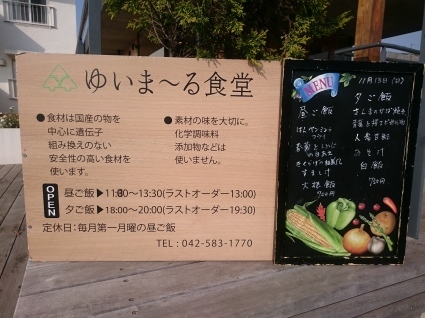 ゆいま～る食堂
●食材は国産の物を
中心に遺伝子
組み換えのない
安全性の高い食材を
使います。
●素材の味を大切に。
化学調味料
添加物などは
使いません。
OPEN
昼ご飯▶11:30～13:30(ラストオーダー13:00)
夕ご飯▶18:00～20:00(ラストオーダー19:30)
定休日：毎月第一月曜の昼ご飯
TEL : 042-583-1770
MENU
11月13日
昼ご飯
大根飯
夕ご飯
白飯
750円